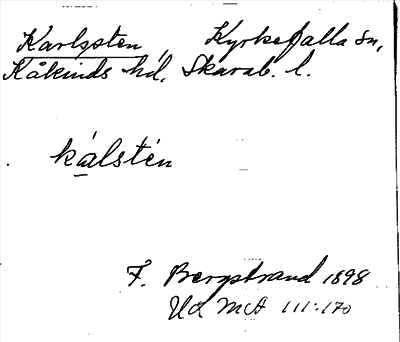 Karlsten, Kyrkefalla sn,
Kåkinds hd, Skarab. l.
kálstén
F. Bergstrand 1898
Ud McA III:170